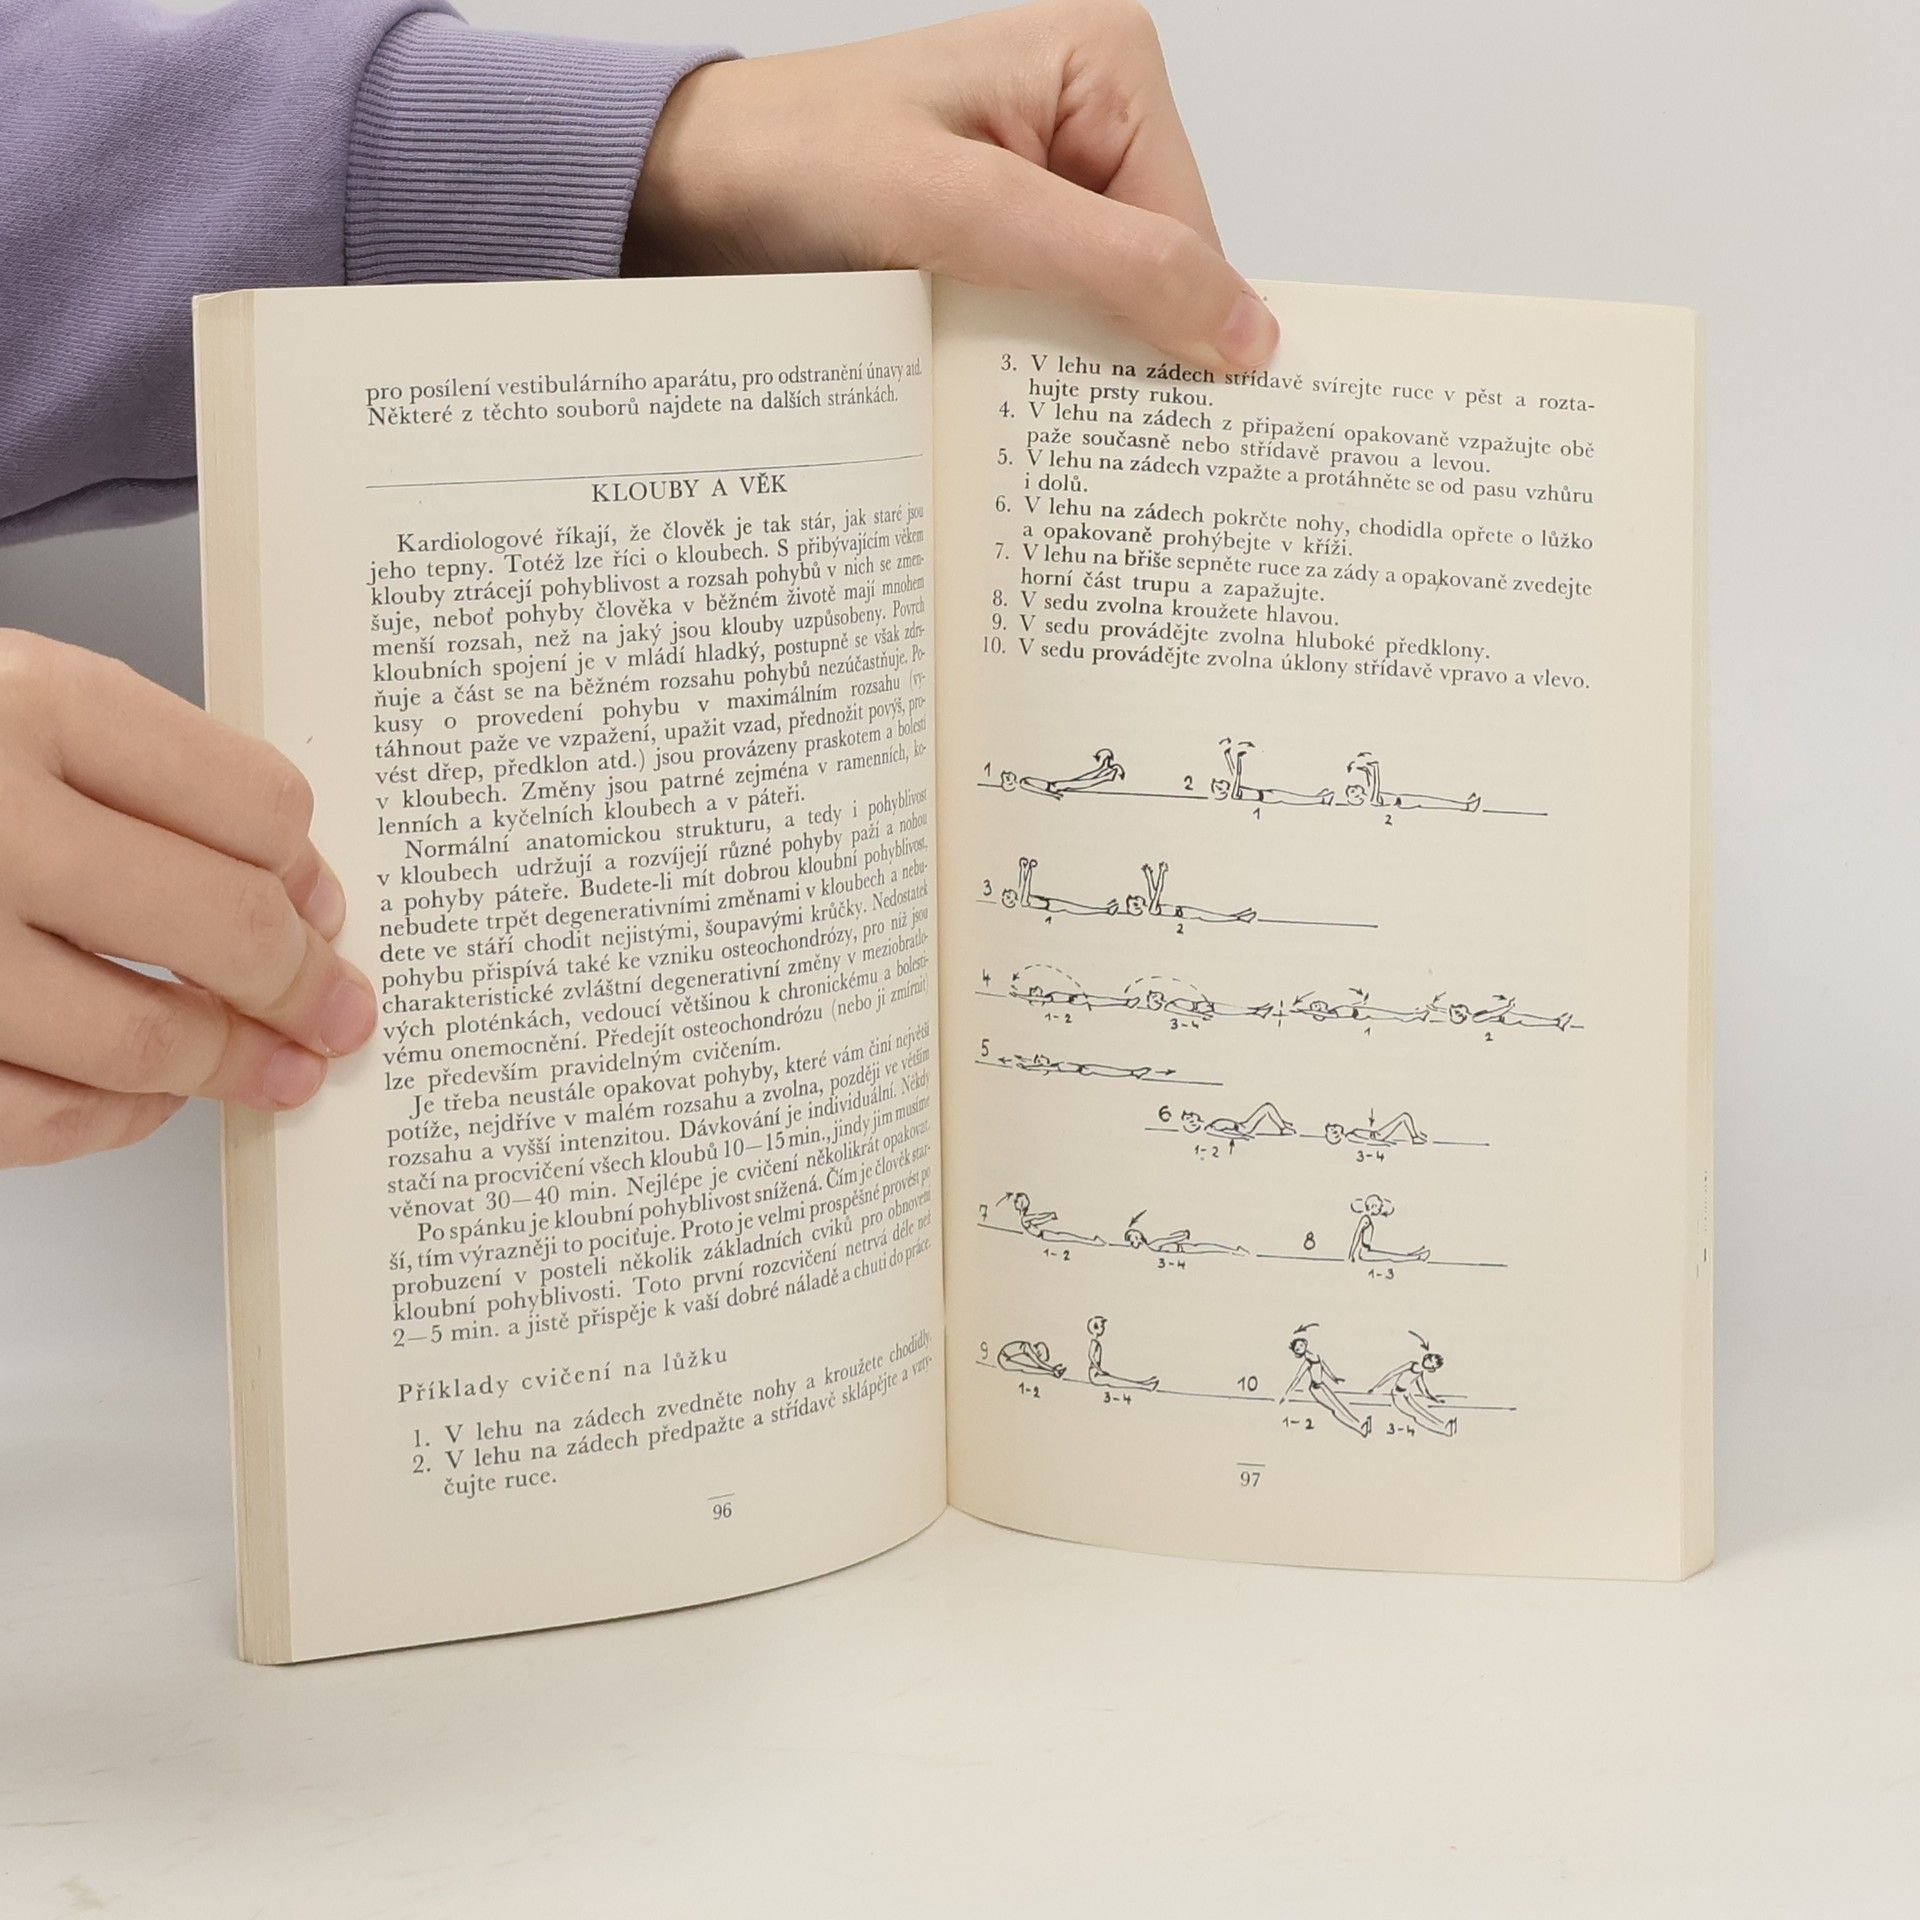 pro posílení vestibulárního aparátu, pro odstranění únavy atd.
Některé z těchto souborů najdete na dalších stránkách.
KLOUBY A VĚK
Kardiologové říkají, že člověk je tak stár, jak staré jsou
jeho tepny. Totéž lze říci o kloubech. S přibývajícím věkem
klouby ztrácejí pohyblivost a rozsah pohybů v nich se zmen-
šuje, neboť pohyby člověka v běžném životě mají mnohem
menší rozsah, než na jaký jsou klouby uzpůsobeny. Povrch
kloubních spojení je v mládí hladký, postupně se však zdrs-
ňuje a část se na běžném rozsahu pohybů nezúčastňuje. Po-
kusy o provedení pohybu v maximálním rozsahu (vy-
táhnout paže ve vzpažení, upažit vzad, přednožit povýš, pro-
vést dřep, předklon atd.) jsou provázeny praskotem a bolestí
v kloubech. Změny jsou patrné zejména v ramenních, ko-
lenních a kyčelních kloubech a v páteři.
Normální anatomickou strukturu, a tedy i pohyblivost
v kloubech udržují a rozvíjejí různé pohyby paží a nohou
a pohyby páteře. Budete-li mít dobrou kloubní pohyblivost,
nebudete trpět degenerativními změnami v kloubech a nebu-
dete ve stáří chodit nejistými, šoupavými krůčky. Nedostatek
pohybu přispívá také ke vzniku osteochondrózy, pro niž jsou
charakteristické zvláštní degenerativní změny v meziobratlo-
vých ploténkách, vedoucí většinou k chronickému a bolesti-
vému onemocnění. Předejít osteochondrózu (nebo ji zmírnit)
lze především pravidelným cvičením.
Je třeba neustále opakovat pohyby, které vám činí největší
potíže, nejdříve v malém rozsahu a zvolna, později ve větším
rozsahu a vyšší intenzitou. Dávkování je individuální. Někdy
stačí na procvičení všech kloubů 10—15 min., jindy jim musíme
věnovat 30—40 min. Nejlépe je cvičení několikrát opakovat.
Po spánku je kloubní pohyblivost snížená. Čím je člověk star-
ší, tím výrazněji to pociťuje. Proto je velmi prospěšné provést po
probuzení v posteli několik základních cviků pro obnovení
kloubní pohyblivosti. Toto první rozcvičení netrvá déle než
2—5 min. a jistě přispěje k vaší dobré náladě a chuti do práce.
Příklady cvičení na lůžku
1. V lehu na zádech zvedněte nohy a kroužete chodidly.
2. V lehu na zádech předpažte a střídavě sklápějte a vzty-
čujte ruce.
96
3. V lehu na zádech střídavě svírejte ruce v pěst a rozta-
hujte prsty rukou.
4. V lehu na zádech z připažení opakovaně vzpažujte obě
paže současně nebo střídavě pravou a levou.
5. V lehu na zádech vzpažte a protáhněte se od pasu vzhůru
i dolů.
6. V lehu na zádech pokrčte nohy, chodidla opřete o lůžko
a opakovaně prohýbejte v kříži.
7. V lehu na břiše sepněte ruce za zády a opakovaně zvedejte
horní část trupu a zapažujte.
8. V sedu zvolna kroužete hlavou.
9. V sedu provádějte zvolna hluboké předklony.
10. V sedu provádějte zvolna úklony střídavě vpravo a vlevo.
1 2
1 2
3
1 2
4
1-2 3-4 1 2
5
6
1-2 3-4
7 8
1-2 3-4 1-3
9 10
1-2 3-4 1-2 3-4
97